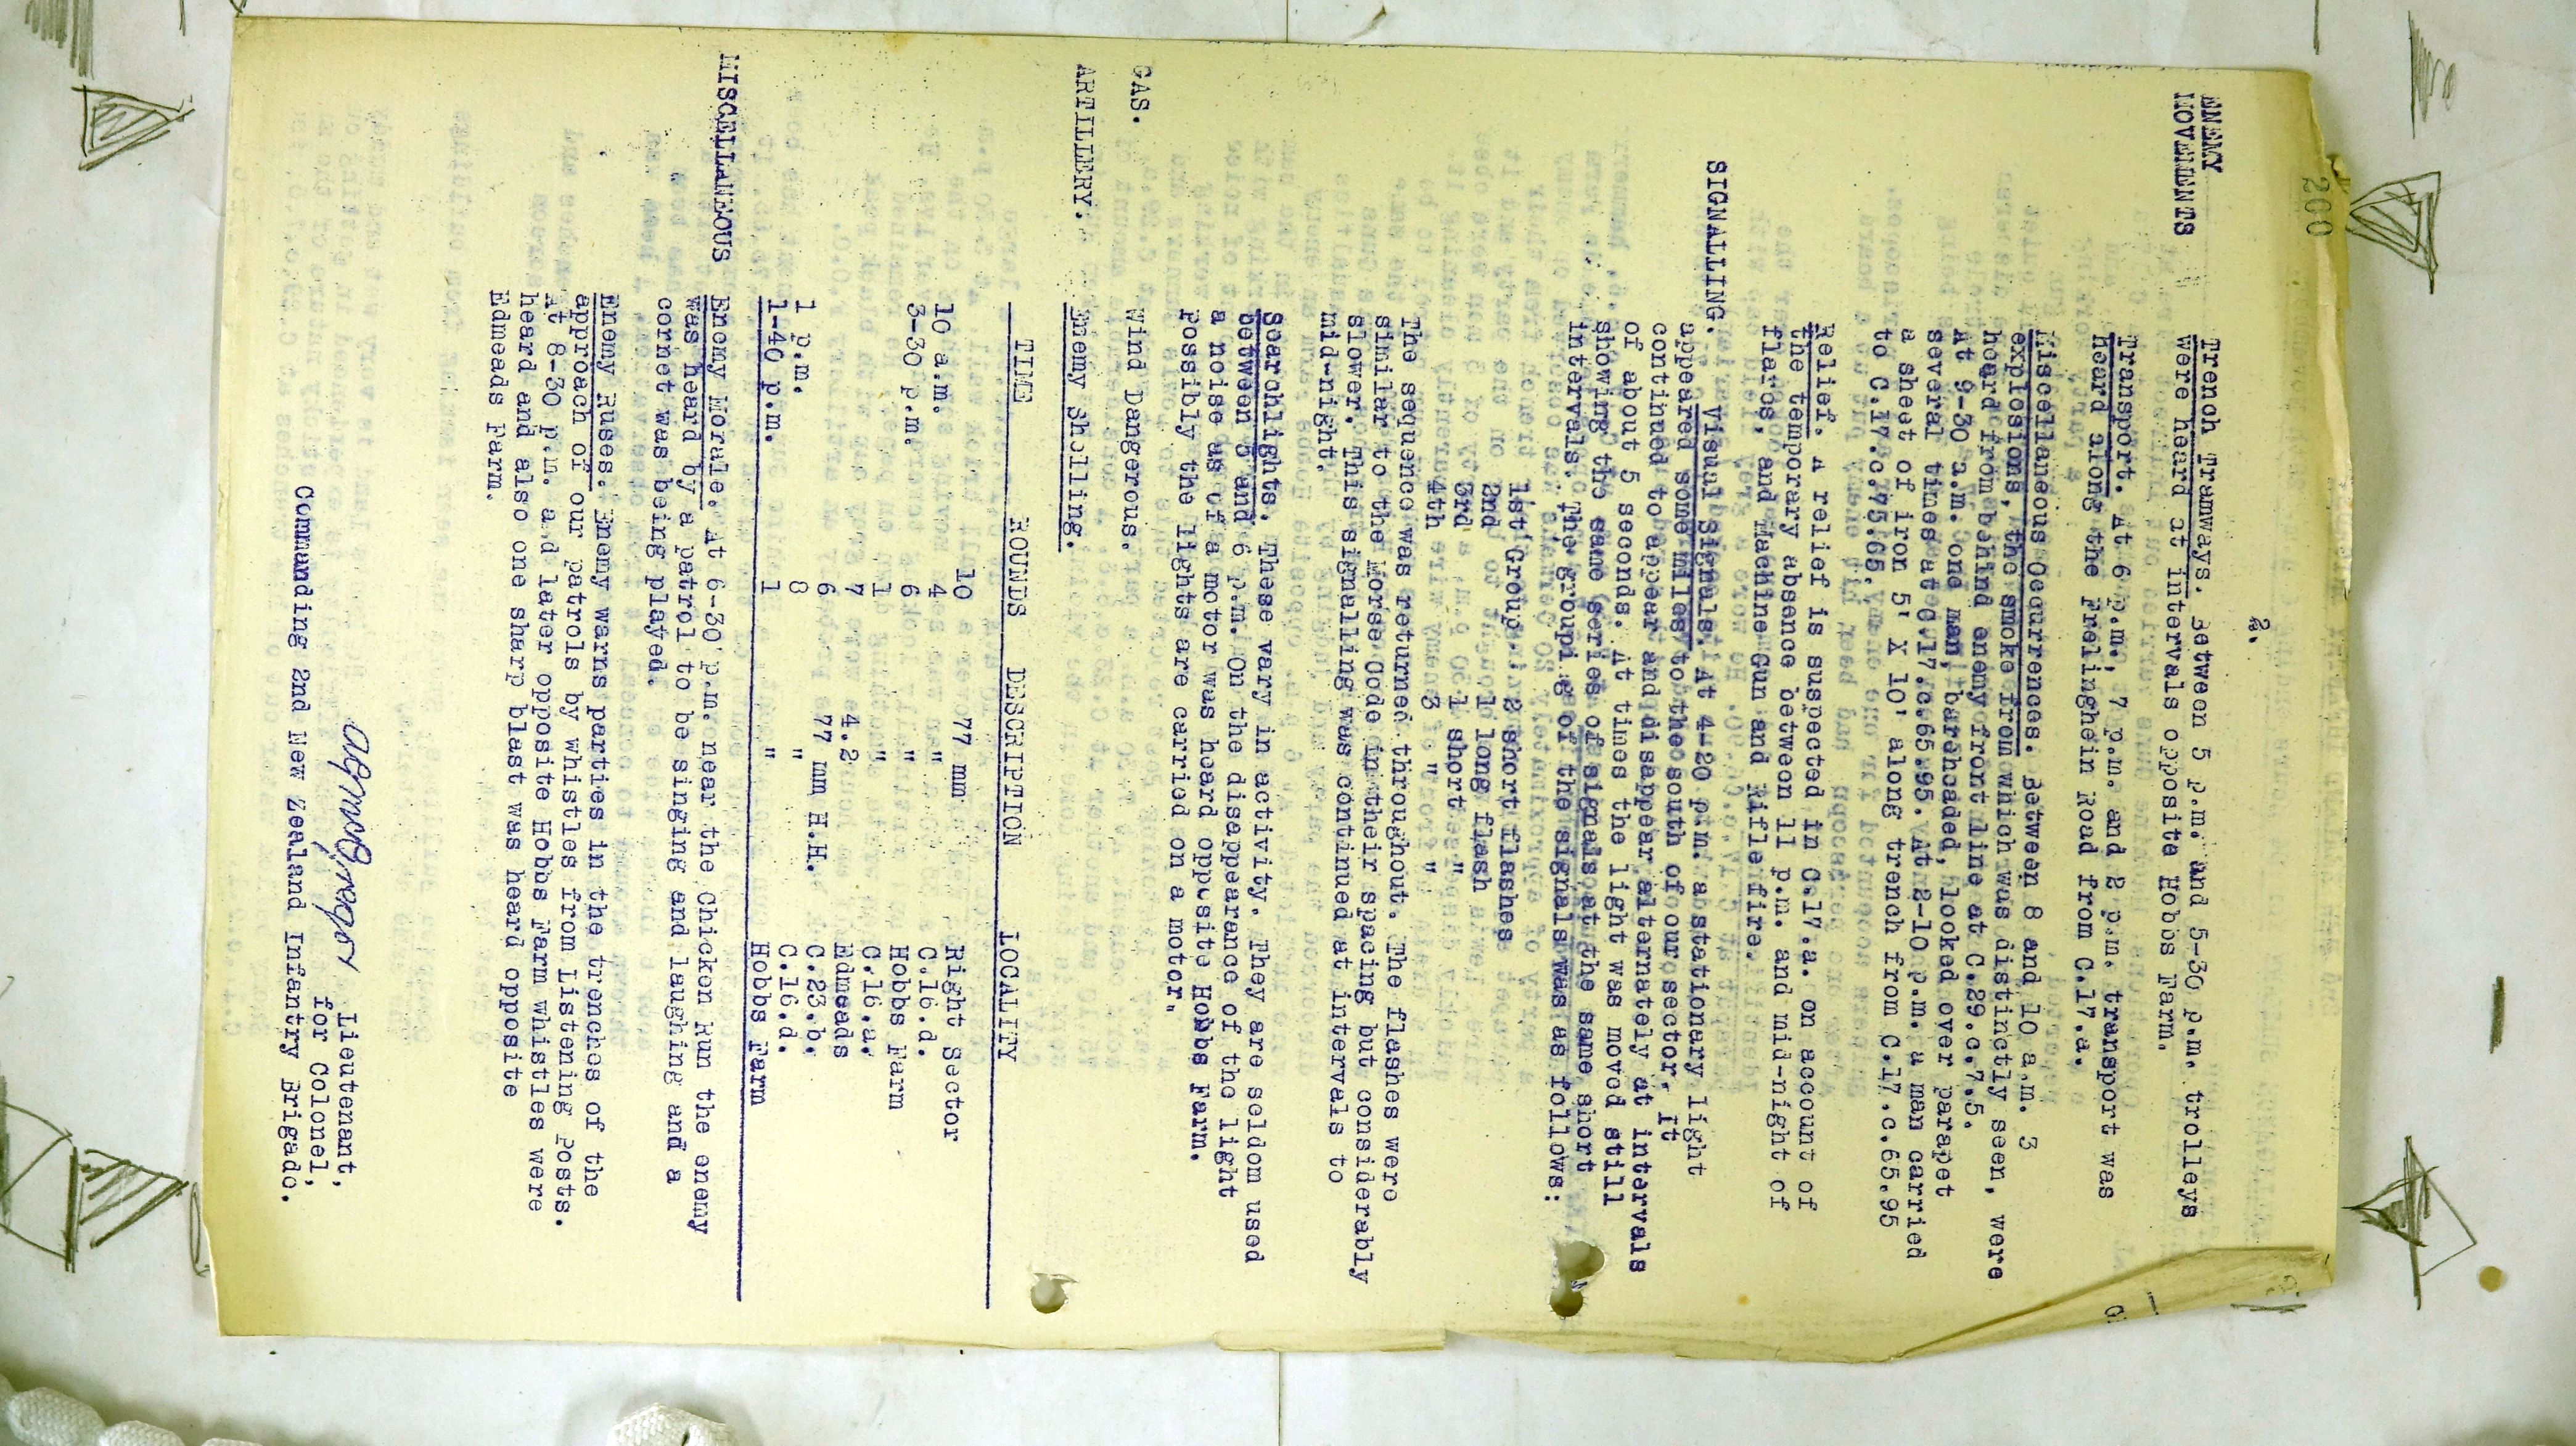 200
2.
ENEMY
MOVEMENTS
Trench Tramways. Between 5 p.m. and 5-30 p.m. trolleys
were heard at intervals opposite Hobbs Farm.
Transport. At 6 p.m., 7 p.m. and 2 p.m. transport was
heard along the Frelinghein Road from C.17.a.
Miscellaneous Occurrences. Between 8 and 10 a.m. 3
explosions, the smoke from which was distinctly seen, were
heard from behind enemy front line at C.29.c.7.5.
At 9-30 a.m. one man, bareheaded, looked over parapet
several times at C.17.c.65.95. At 2-10 p.m. a man carried
a sheet of iron 5' X 10' along trench from C.17.c.65.95
to C.17.c.75.65.
Relief. A relief is suspected in C.17.a. on account of
the temporary absence between 11 p.m. and mid-night of
flares, and Machine Gun and Rifle fire.
SIGNALLING.
Visual Signals. At 4-20 p.m. a stationary light
appeared some miles to the south of our sector. It
continued to appear and disappear alternately at intervals
of about 5 seconds. At times the light was moved still
showing the same series of signals at the same short
intervals. The groupi g of the signals was as follows:
1st Group 2 short flashes
2nd " 1 long flash
3rd " 1 short "
4th " 3 " "
The sequence was returned throughout. The flashes were
similar to the Morse Code in their spacing but considerably
slower. This signalling was continued at intervals to
mid-night.
Searchlights. These vary in activity. They are seldom used
between 5 and 6 p.m. On the disappearance of the light
a noise as of a motor was heard opposite Hobbs Farm.
Possibly the lights are carried on a motor.
GAS.
Wind Dangerous.
ARTILLERY.
Enemy Shelling.
TIME ROUNDS DESCRIPTION LOCALITY
10 77 mm Right Sector
10 a.m. 4 " C.16.d.
3-30 p.m. 6 " Hobbs Farm
1 " C.16.a.
7 4.2 Edmeads
6 77 mm H.H. C.23.b.
1 p.m. 8 " C.16.d.
1-40 p.m. 1 " Hobbs Farm
MISCELLANEOUS
Enemy Morale. At 6-30 p.m. near the Chicken Run the enemy
was heard by a patrol to be singing and laughing and a
cornet was being played.
Enemy Ruses. Enemy warns parties in the trenches of the
approach of our patrols by whistles from Listening Posts.
At 8-30 p.m. a d later opposite Hobbs Farm whistles were
heard and also one sharp blast was heard opposite
Edmeads Farm.
Lieutenant,
for Colonel,
Commanding 2nd New Zealand Infantry Brigade.